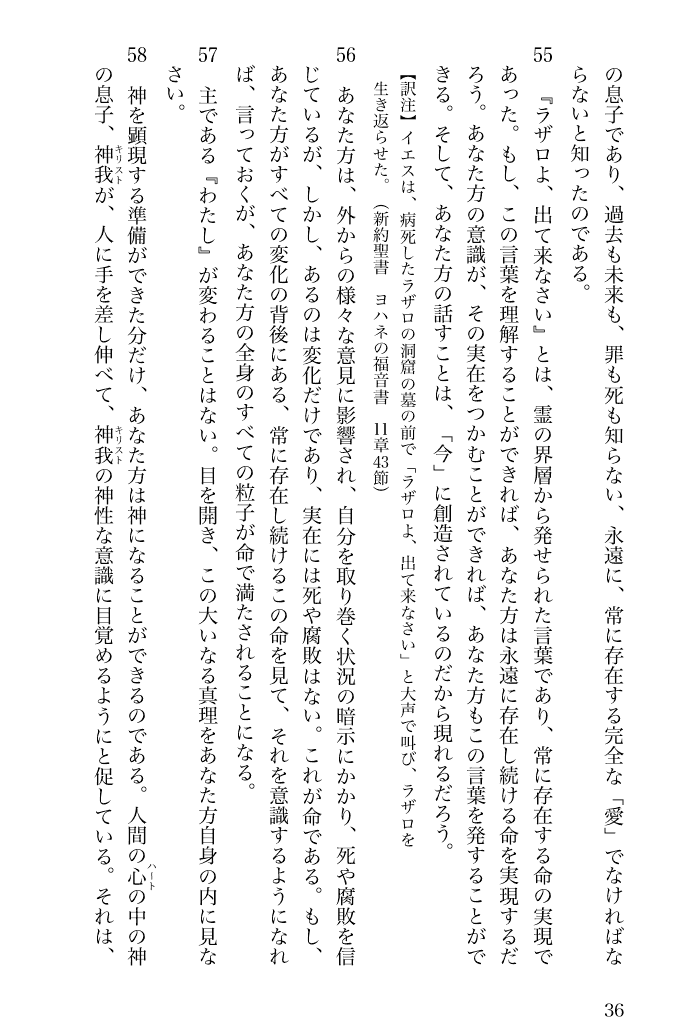 の息子であり、過去も未来も、罪も死も知らない、永遠に、常に存在する完全な「愛」でなければな
らないと知ったのである。
55　『ラザロよ、出て来なさい』とは、霊の界層から発せられた言葉であり、常に存在する命の実現で
あった。もし、この言葉を理解することができれば、あなた方は永遠に存在し続ける命を実現するだ
ろう。あなた方の意識が、その実在をつかむことができれば、あなた方もこの言葉を発することがで
きる。そして、あなた方の話すことは、「今」に創造されているのだから現れるだろう。
【訳注】イエスは、病死したラザロの洞窟の墓の前で「ラザロよ、出て来なさい」と大声で叫び、ラザロを
生き返らせた。（新約聖書　ヨハネの福音書　11章43節）
56　あなた方は、外からの様々な意見に影響され、自分を取り巻く状況の暗示にかかり、死や腐敗を信
じているが、しかし、あるのは変化だけであり、実在には死や腐敗はない。これが命である。もし、
あなた方がすべての変化の背後にある、常に存在し続けるこの命を見て、それを意識するようになれ
ば、言っておくが、あなた方の全身のすべての粒子が命で満たされることになる。
57　主である『わたし』が変わることはない。目を開き、この大いなる真理をあなた方自身の内に見な
さい。
58　神を顕現する準備ができた分だけ、あなた方は神になることができるのである。人間の心（ハート）の中の神
の息子、神我（キリスト）が、人に手を差し伸べて、神我（キリスト）の神性な意識に目覚めるようにと促している。それは、
36